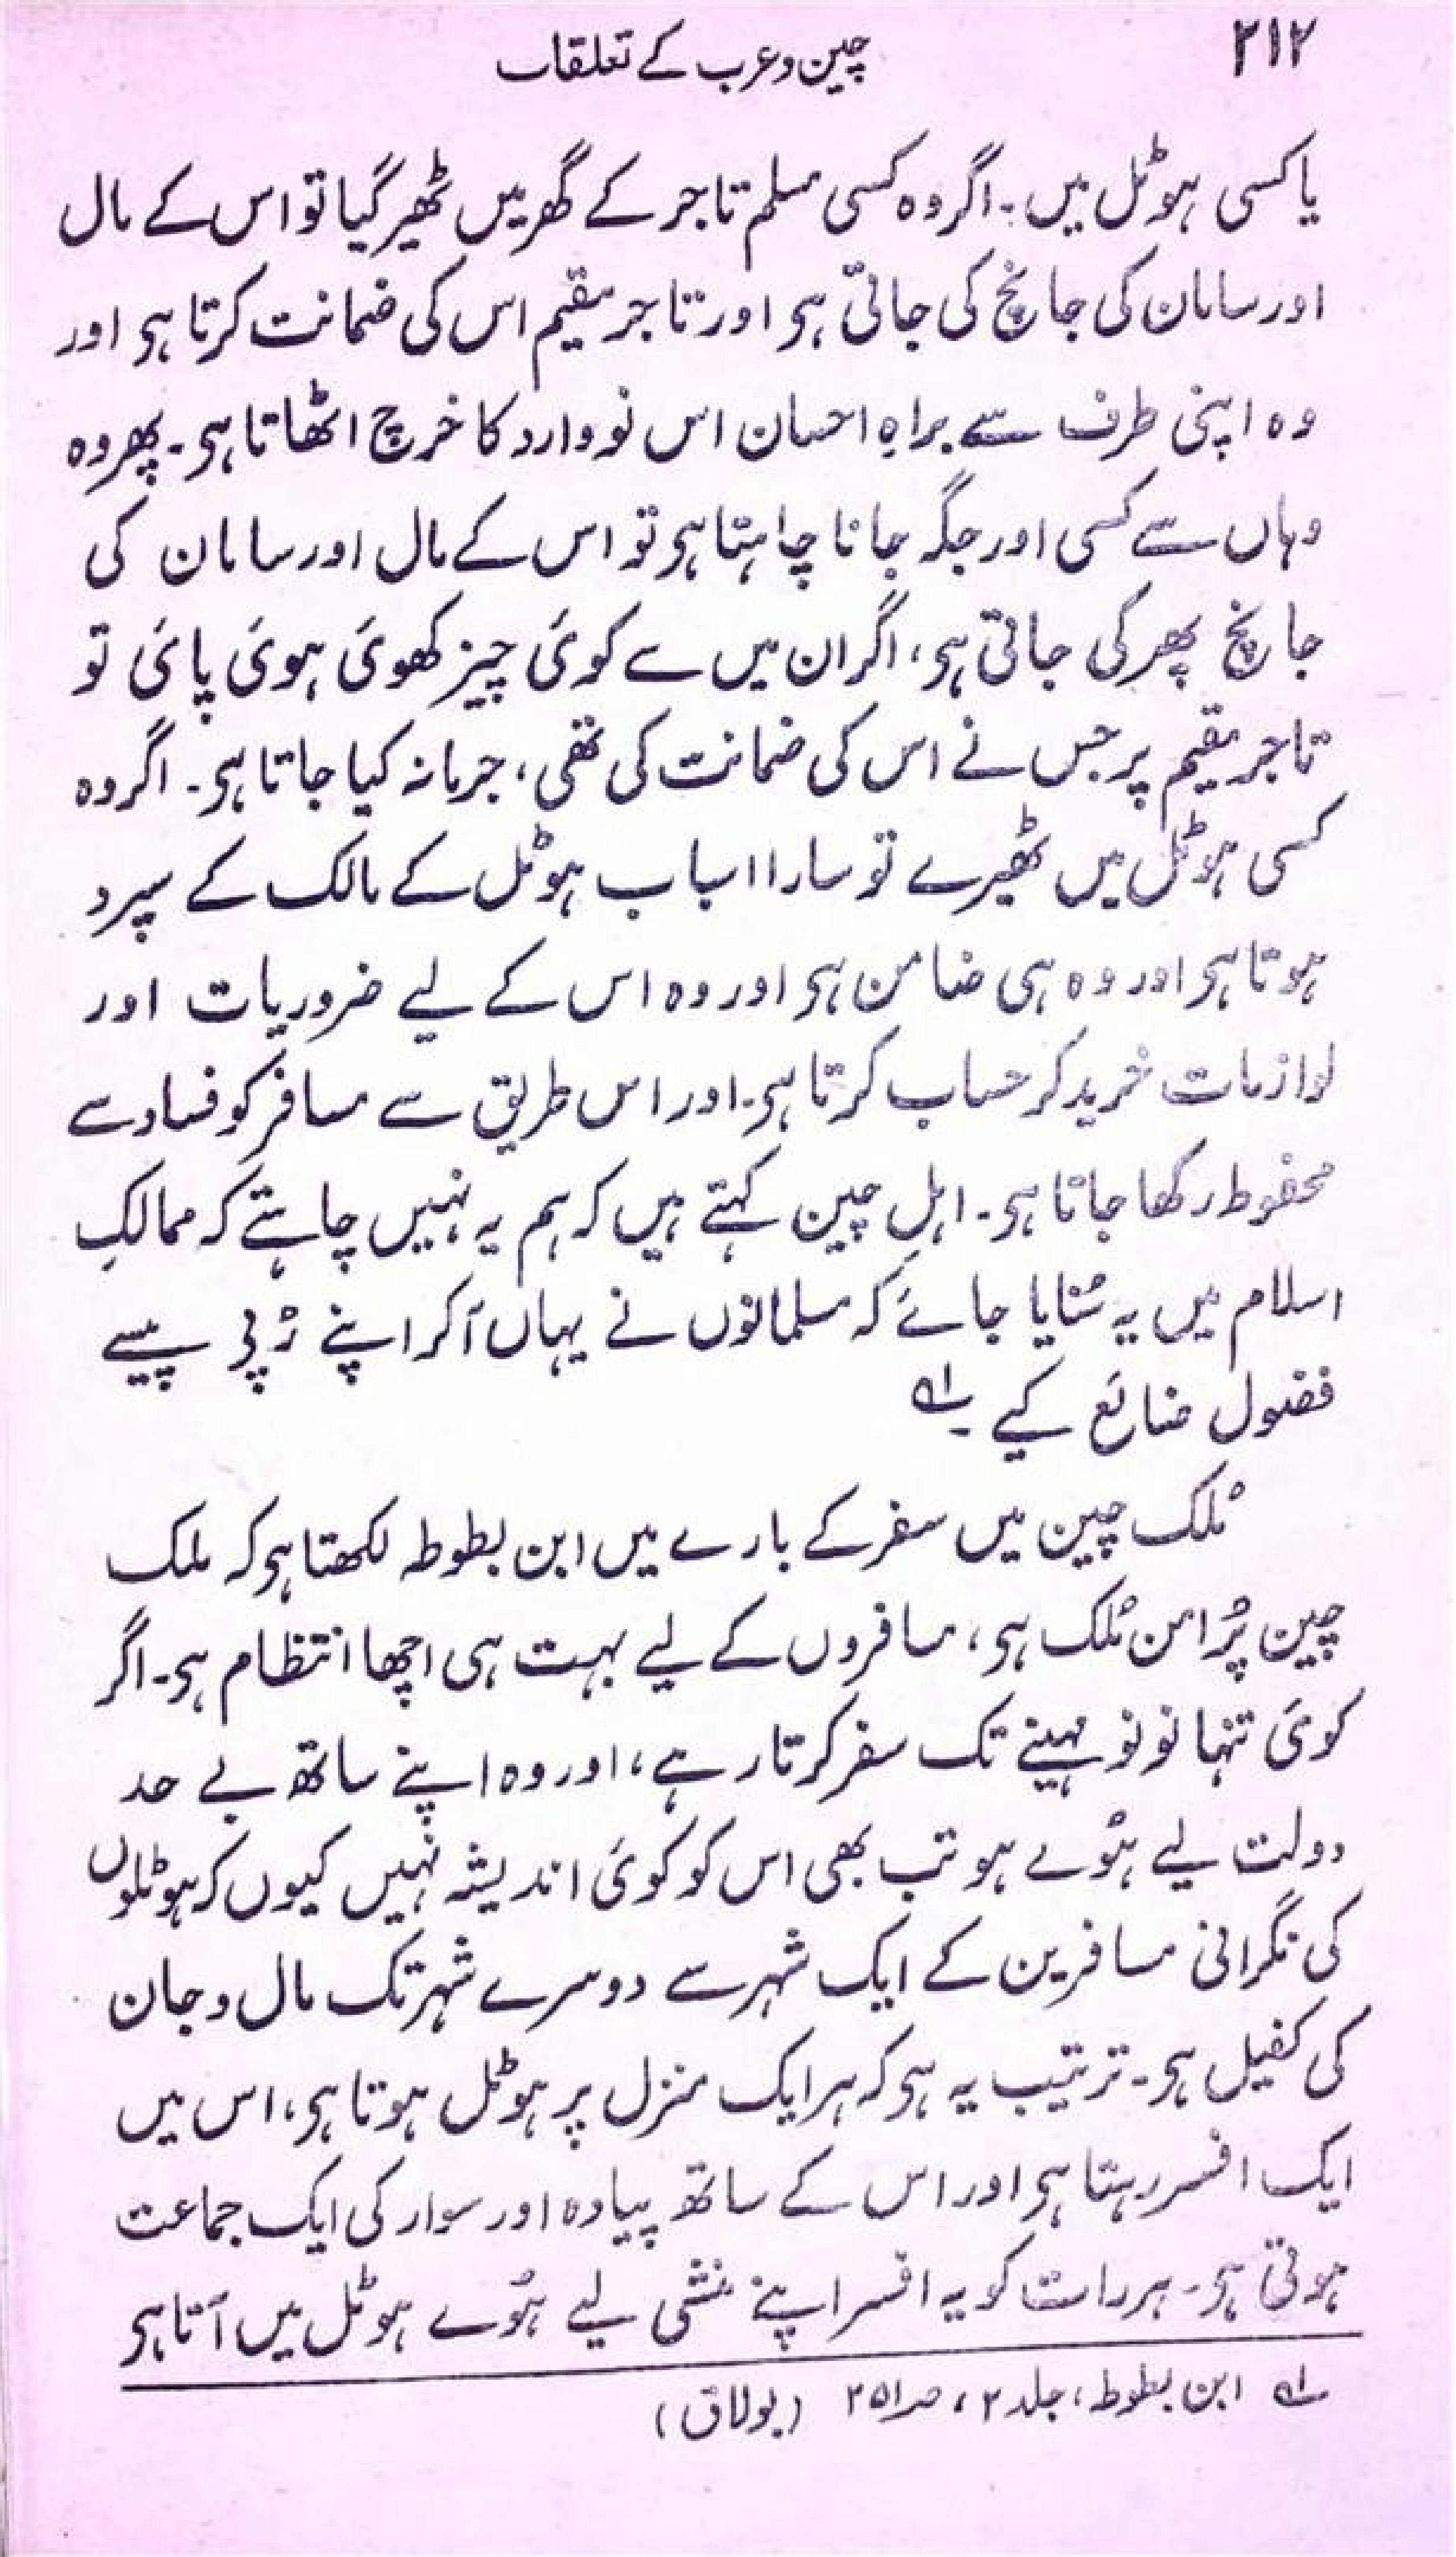 ۲۱۲
چین و عرب کے تعلقات
یا کسی ہوٹل میں۔ اگر وہ کسی مسلم تاجر کے گھر میں ٹھیر گیا تو اس کے مال
اور سامان کی جانچ کی جاتی ہو اور تاجر مقیم اس کی ضمانت کرتا ہو اور
وہ اپنی طرف سے براہِ احسان اس نووارد کا خرچ اٹھاتا ہو۔ پھر وہ
وہاں سے کسی اور جگہ جانا چاہتا ہو تو اس کے مال اور سامان کی
جانچ پھر کی جاتی ہو، اگر ان میں سے کوئی چیز کھوئی ہوئی پائی تو
تاجر مقیم پر جس نے اس کی ضمانت کی تھی، جرمانہ کیا جاتا ہو۔ اگر وہ
کسی ہوٹل میں ٹھیرے تو سارا اسباب ہوٹل کے مالک کے سپرد
ہوتا ہو اور وہ ہی ضامن ہو اور وہ اس کے لیے ضروریات اور
لوازمات خرید کر حساب کرتا ہو۔ اور اس طریق سے مسافر کو فساد سے
محفوظ رکھا جاتا ہو۔ اہلِ چین کہتے ہیں کہ ہم یہ نہیں چاہتے کہ ممالکِ
اسلام میں یہ سُنایا جائے کہ مسلمانوں نے یہاں آکر اپنے رُپی پیسے
فضول ضائع کیے۔ لہ
مُلک چین میں سفر کے بارے میں ابن بطوطہ لکھتا ہو کہ ملک
چین پُرامن مُلک ہو، مسافروں کے لیے بہت ہی اچھا انتظام ہو۔ اگر
کوئی تنہا نو نو مہینے تک سفر کرتا رہے، اور وہ اپنے ساتھ بے حد
دولت لیے ہوُے ہو تب بھی اس کو کوئی اندیشہ نہیں کیوں کہ ہوٹلوں
کی نگرانی مسافرین کے ایک شہر سے دوسرے شہر تک مال و جان
کی کفیل ہو۔ ترتیب یہ ہو کہ ہر ایک منزل پر ہوٹل ہوتا ہو، اس میں
ایک افسر رہتا ہو اور اس کے ساتھ پیادہ اور سوار کی ایک جماعت
ہوتی ہو۔ ہر رات کو یہ افسر اپنے منشی لیے ہُوے ہوٹل میں آتا ہو
لہ ابن بطوطہ، جلد ۲، صـ۲۵۱ (بولاق)